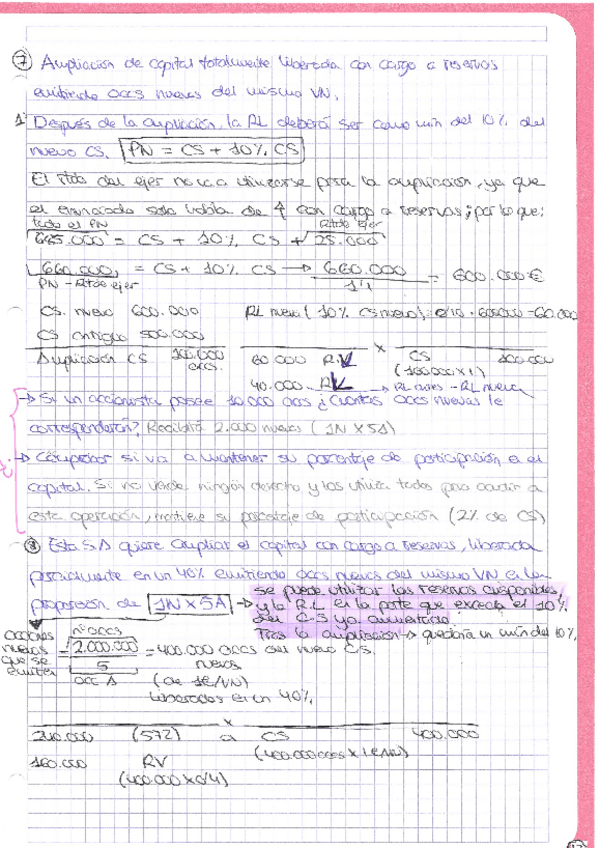 7 Ampliación de capital totalmente liberada con cargo a reservas
emitiendo accs nuevas del mismo VN.
1º Después de la ampliación, la RL deberá ser como mín del 10% del
nuevo CS. PN = CS + 10% CS
El rtdo del ejer no va a utilizarse para la ampliación, ya que
el enunciado solo habla de ↑ con cargo a reservas; por lo que:
todo el PN Rtdo ejer
685.000 = CS + 10% CS + 25.000
660.000 = CS + 10% CS → 660.000 / 1'1 = 600.000€
PN - Rtdo ejer
CS. nuevo 600.000 RL nueva ( 10% CS nuevo) = 0'10 · 600.000 = 60.000
CS antiguo 500.000
Ampliación CS 100.000 accs. 60.000 RV x CS 100.000
(100.000 x 1)
40.000 RL → RL antes - RL nueva
→ Si un accionista posee 10.000 accs ¿Cuántas accs nuevas le
corresponderán? Recibirá 2.000 nuevas (1N X 5A)
→ Comprobar si va a mantener su porcentaje de participación en el
capital. Si no vende ningún derecho y los utiliza todos para acudir a
esta operación, mantiene su porcentaje de participación (2% de CS)
8 Esta S.A quiere ampliar el capital con cargo a reservas, liberada
parcialmente en un 40% emitiendo accs nuevas del mismo VN en la
proporción de 1N X 5A → se puede utilizar las reservas disponibles,
y la R.L en la parte que exceda el 10%
del C.S ya aumentado
Tras la ampliación → quedará un mín del 10%.
acciones nuevas que se emiten = nº accs 2.000.000 / 5 acc A = 400.000 accs del nuevo CS.
nuevas
(de 1€/VN)
liberadas en un 40%
x
240.000 (572) a CS 400.000
(400.000 accs x 1€/VN)
160.000 RV
(400.000 x 0'4)